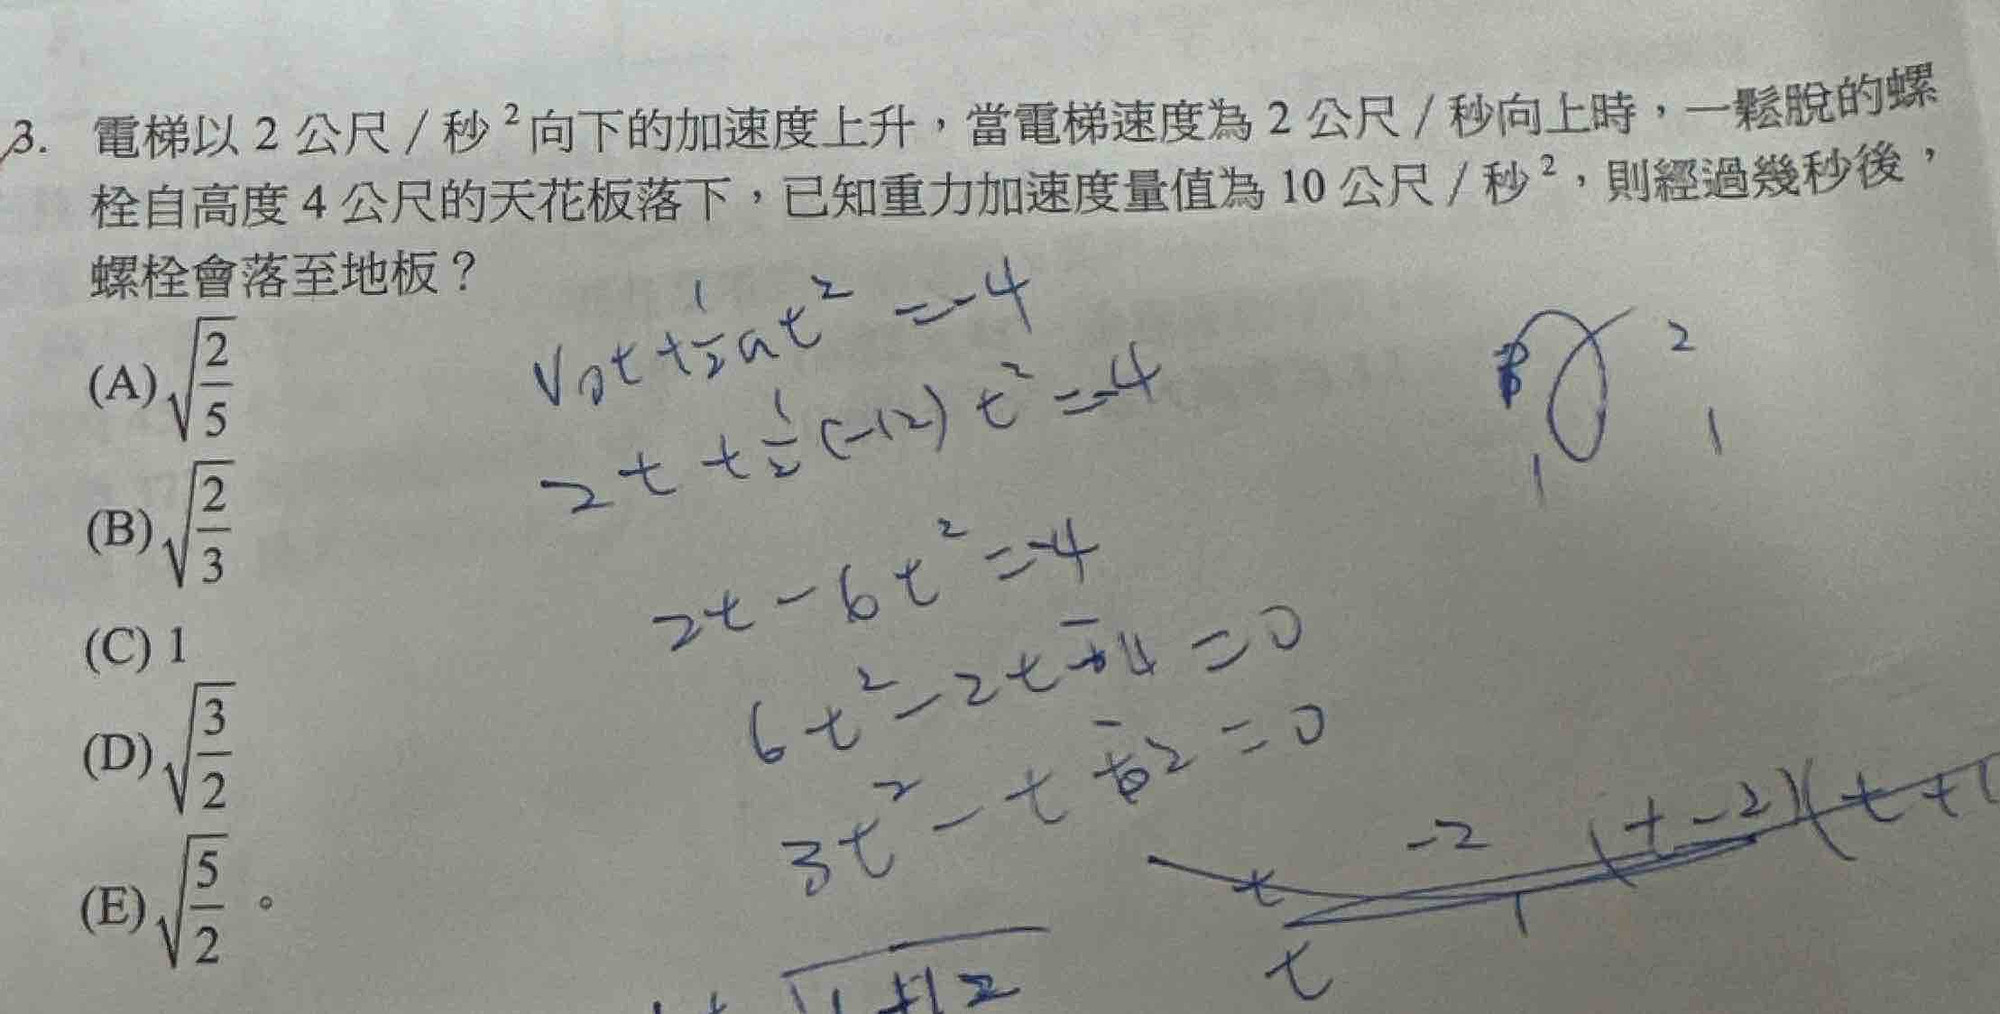 3. 電梯以 2 公尺 / 秒² 向下的加速度上升，當電梯速度為 2 公尺 / 秒向上時，一鬆脫的螺
栓自高度 4 公尺的天花板落下，已知重力加速度量值為 10 公尺 / 秒²，則經過幾秒後，
螺栓會落至地板？
(A) √(2/5)
(B) √(2/3)
(C) 1
(D) √(3/2)
(E) √(5/2)。
V₀t + ½at² = -4
2t + ½(-12)t² = -4
2t - 6t² = -4
6t² - 2t - 4 = 0
3t² - t - 2 = 0
2
1
1
-2 (t-2)(t+1
t